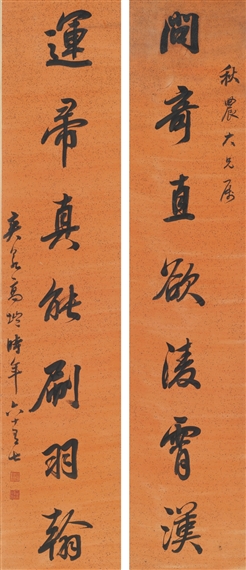 秋農大兄属
問奇直欲淩霄漢
運帚真能刷羽翰
爽泉高塏時年六十有七